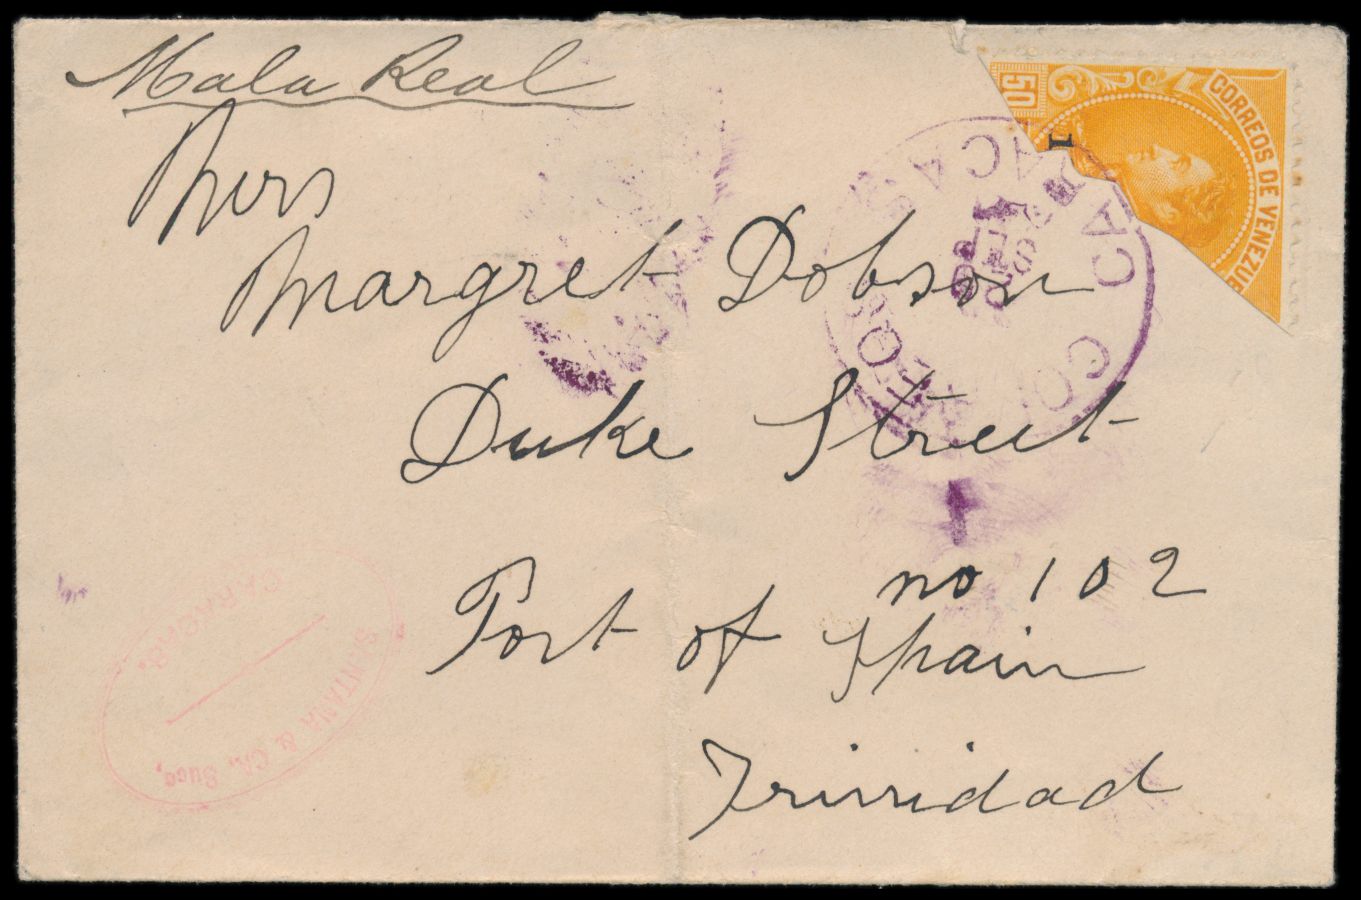 Mala Real
Mrs
Margret Dobson
Duke Street
no 102
Port of Spain
Trinidad
50
1
CORREOS DE VENEZUE
CORREOS
CARACAS
SEP
SANTANA & CA. Sucs,
CARACAS.